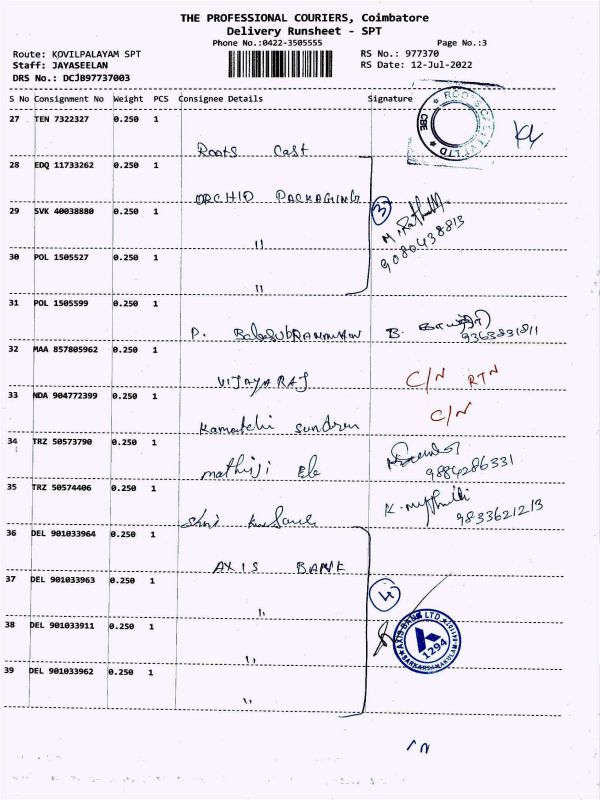 THE PROFESSIONAL COURIERS, Coimbatore
Delivery Runsheet - SPT
Phone No.:0422-3505555
Page No.:3
Route: KOVILPALAYAM SPT
RS No.: 977370
Staff: JAYASEELAN
RS Date: 12-Jul-2022
DRS No.: DCJB97737003
S No Consignment No Weight PCS Consignee Details Signature
27 TEN 7322327 0.250 1
Roots Cast
28 EDQ 11733262 0.250 1
ORCHID PACKAGING
29 SVK 40038880 0.250 1
"
3
9080438813
30 POL 1505527 0.250 1
"
31 POL 1505599 0.250 1
P. Balasubramaniam B.
9363831811
32 MAA 857805962 0.250 1
VIJAYARAJ C/N RTN
33 NDA 904772399 0.250 1
Kamatchi sundren C/N
34 TRZ 50573790 0.250 1
mathiji Ele
9884286331
35 TRZ 50574406 0.250 1
Shri
9833621213
36 DEL 901033964 0.250 1
AXIS BANK
37 DEL 901033963 0.250 1
"
4
38 DEL 901033911 0.250 1
"
AXIS BANK LTD
1294
39 DEL 901033962 0.250 1
"